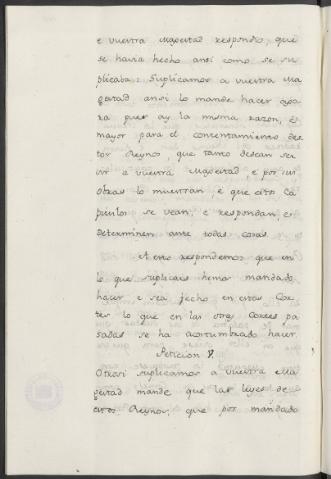 e vuestra Magestad respondio, que
se havia hecho ansi como se su
plicaba: Suplicamos a vuestra Ma
gestad ansi lo mande hacer agora
pues ay la misma razon, e
mayor para el contentamiento des
tos Reynos que tanto desean ser
vir e vuestra Magestad, e por sus
obras lo muestran, e que estos Ca
pitulos se vean, e respondan, e
determinen ante todas cosas.
A esto respondemos que en
lo que suplicais hemos mandado
hacer e sea fecho en estas Cor
tes lo que en las otras Cortes pa
sadas se ha acostumbrado hacer.
Peticion V.
Otrosi suplicamos a vuestra Ma
gestad mande que las leyes de
estos Reynos, que por mandado